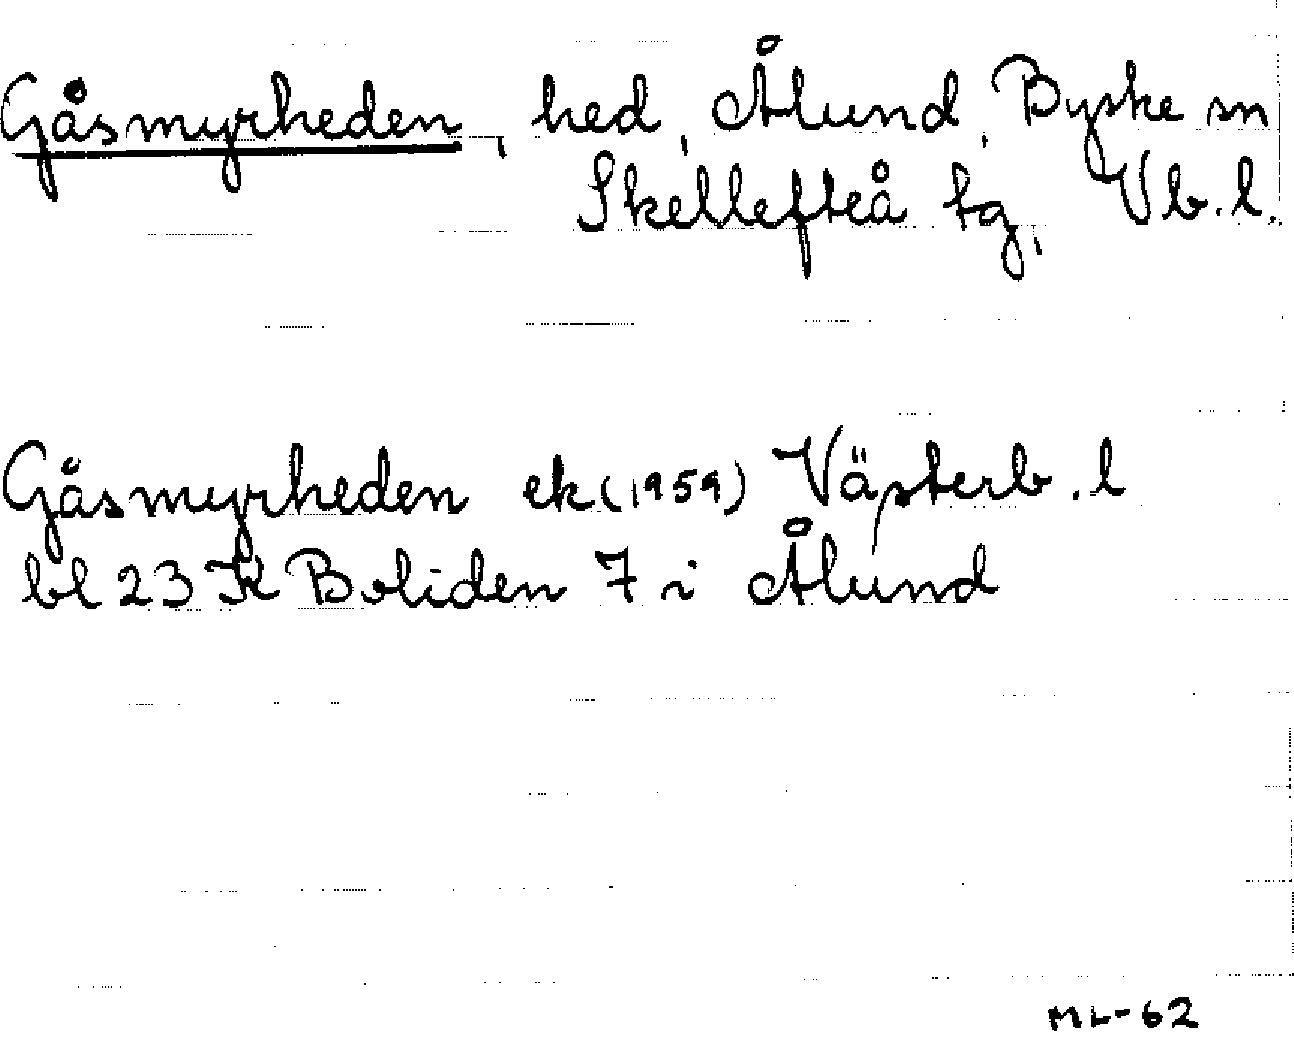 Gåsmyrheden, hed, Ålund, Byske sn
Skellefteå tg, Vb.l.
Gåsmyrheden ek (1959) Västerb.l
bl 23 K Boliden 7 i Ålund
ML-62